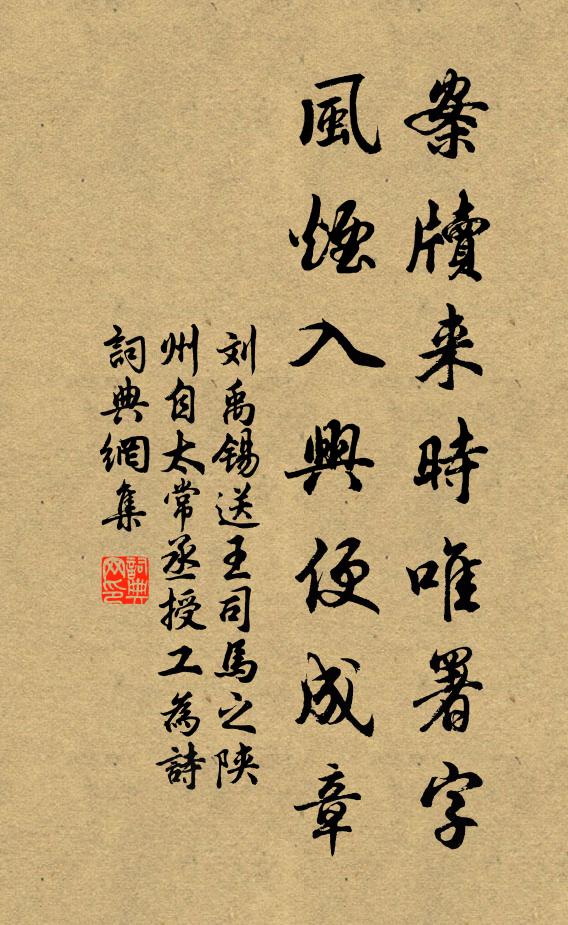 案牘来時唯署字
風煙入興便成章
刘禹錫送王司馬之陝
州自太常丞授工為詩
詞典網集
詞典网印